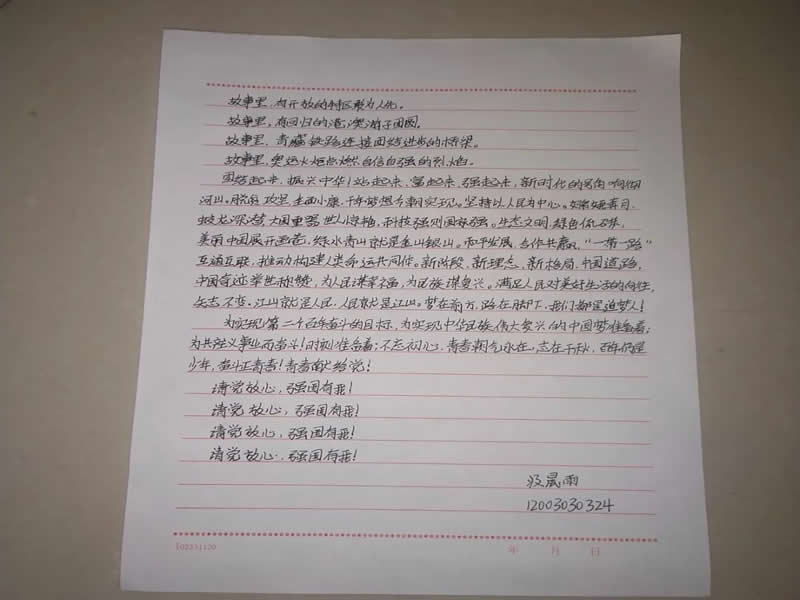 故事里，有开放的特区敢为人先。
故事里，有回归的港澳游子团圆。
故事里，青藏铁路连接团结进步的桥梁。
故事里，奥运火炬点燃自信自强的烈焰。
团结起来，振兴中华！站起来，富起来，强起来，新时代的号角响彻
河山。脱贫攻坚，全面小康，千年梦想今朝实现。坚持以人民为中心。嫦娥奔月，
蛟龙深潜，大国重器世人惊艳，科技强则国家强。生态文明，绿色低碳，
美丽中国展开画卷，绿水青山就是金山银山。和平发展，合作共赢，“一带一路”
互通互联，推动构建人类命运共同体。新阶段，新理念，新格局，中国道路，
中国奇迹举世称赞，为人民谋幸福，为民族谋复兴。满足人民对美好生活的向往，
矢志不变，江山就是人民，人民就是江山。梦在前方，路在脚下，我们都是追梦人！
为实现第二个百年奋斗的目标，为实现中华民族伟大复兴的中国梦准备着；
为共产主义事业而奋斗！时刻准备着；不忘初心，青春朝气永在，志在千秋，百年仍是
少年，奋斗正青春！青春献给党！
请党放心，强国有我！
请党放心，强国有我！
请党放心，强国有我！
请党放心，强国有我！
晟雨
12003030324
102331120
年 月 日